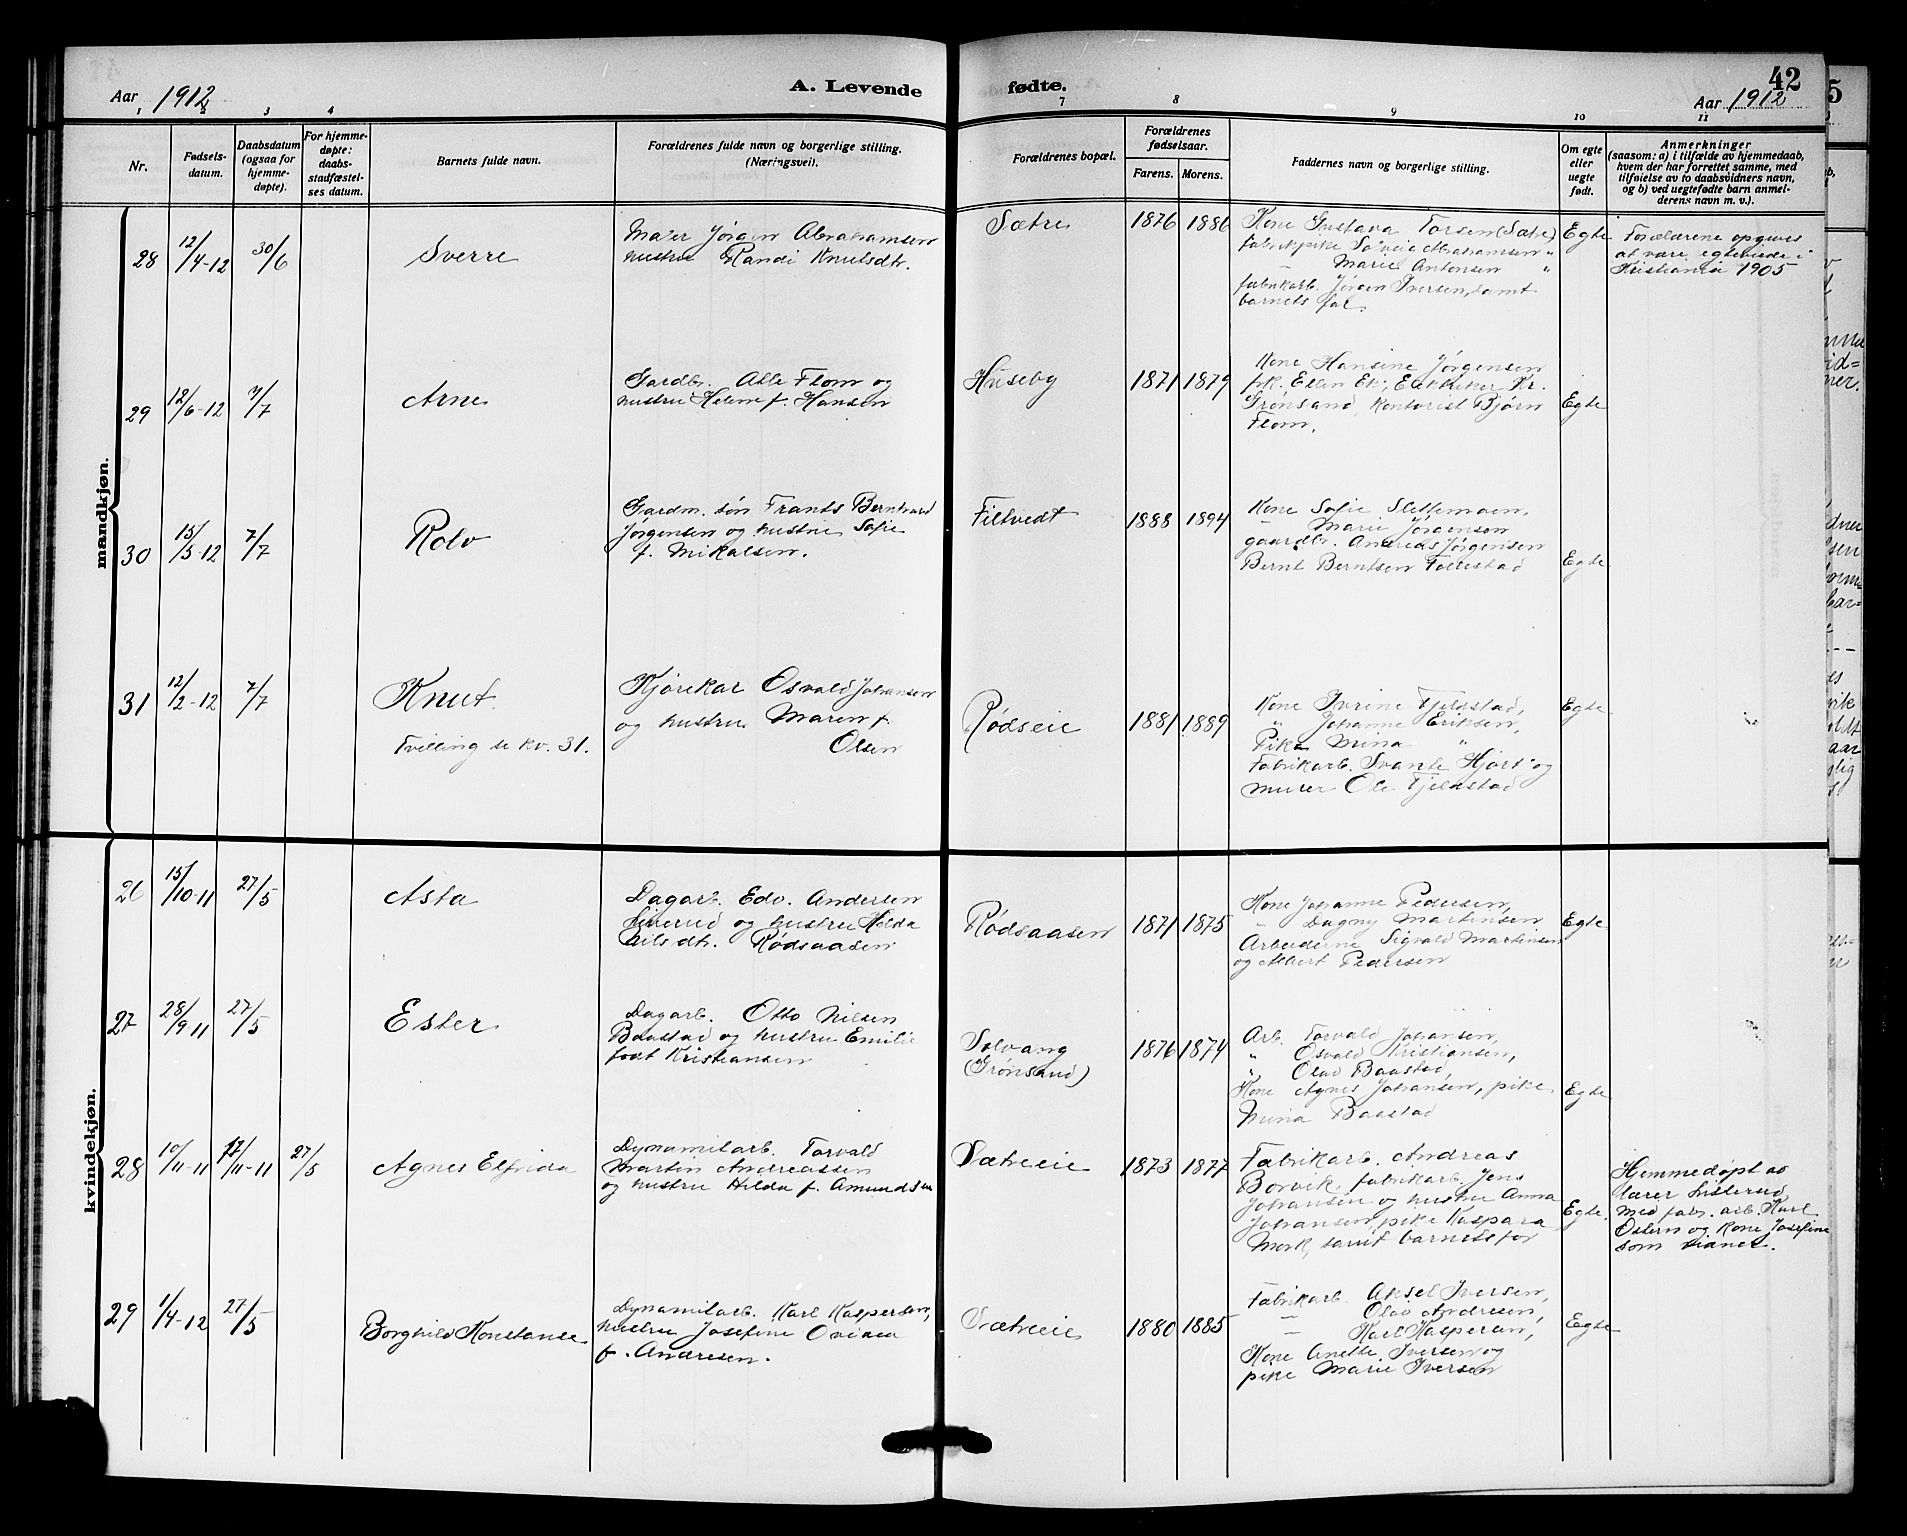 Aar 1912
A. Levende
fødte.
42
Aar 1912
1 2 3 4 7 8 9 10 11
Nr.
Fødsels-
datum.
Daabsdatum
(ogsaa for
hjemme-
døpte).
For hjemme-
døpte:
daabs-
stadfæstel-
ses datum.
Barnets fulde navn.
Forældrenes fulde navn og borgerlige stilling.
(Næringsvei).
Forældrenes bopæl.
Forældrenes
fødselsaar.
Farens. Morens.
Faddernes navn og borgerlige stilling.
Om egte
eller
uegte
født.
Anmerkninger
(saasom: a) i tilfælde av hjemmedaab,
hvem der har forrettet samme, med
tilføielse av to daabsvidners navn,
og b) ved uegtefødte barn anmel-
derens navn m. v.).
mandkjøn.
28 12/4-12 30/6 Sverre
Maler Jørgen Abrahamsen
hustru Randi Knutsdt.
Sætre 1876 1886
Kone Gustava Torsen (Sætre)
fabrikpike Solveig Abrahamsen "
— Marie Antonsen "
fabrikarb. Jørgen Iversen, samt
barnets far.
Egte
Forældrene opgives
at være egteviede i
Kristiania 1905
29 12/6-12 7/7 Arne
Gardbr. Atle Flom og
hustru Helene f. Hansen
Huseby 1871 1879
Kone Hansine Jørgensen
frk. Ellen Ek, Kr.
Grønsand, kontorist Bjørn
Flom.
Egte
30 15/5-12 7/7 Rolv
Gardm. søn Frants Berntvard
Jørgensen og hustru Sofie
f. Mikalsen.
Filtvedt 1888 1894
Kone Sofie Slettemoen,
— Marie Jørgensen
gaardbr. Andreas Jørgensen
Bernt Berntsen Tollestad
Egte
31 12/2-12 7/7 Knut.
Tvilling se kv. 31.
Kjørekar Osvald Johansen
og hustru Maren f.
Olsen
Rødseie 1881 1889
Kone Ivrine Fjeldstad,
" Johanne Eriksen,
Pike Mina "
Fabrikarb. Svante Hjort og
murer Ole Fjeldstad
Egte
kvindekjøn.
26 15/10-11 27/5 Asta
Dagarb. Edv. Andersen
Liverud og hustru Hilda
Nilsdt. Rødsaasen
Rødsaasen 1871 1875
Kone Johanne Pedersen,
" Dagny Martinsen
Arbeiderne Sigvald Martinsen
og Albert Pedersen
Egte
27 28/9 11 27/5 Ester
Dagarb. Otto Nilsen
Baastad og hustru Emilie
født Kristiansen
Solvang
(Grønsand)
1876 1874
Arb. Torvald Johansen,
" Osvald Kristiansen,
" Olav Baastad,
Kone Agnes Johansen, pike
Mina Baastad
Egte
28 10/11-11 12/11-11 27/5 Agnes Elfrida
Dynamitarb. Torvald
Martin Andreassen
og hustru Hilda f. Amundsen
Sætreeie 1873 1877
Fabrikarb. Andreas
Borvik, fabrikarb. Jens
Johansen og hustru Anna
Johansen, pike Kaspara
Mork, samt barnets far
Egte.
Hjemmedøpt av
lærer Listerud,
med fabr. arb. Karl
Ostern og kone Josefine
som vidner.
29 1/4-12 27/5 Borghild Konstanse
Dynamitarb. Karl Kaspersen,
hustru Josefine Ovidea
f. Andresen.
Sætreeie 1880 1885
Fabrikarb. Aksel Iversen,
— Olav Andresen,
— Karl Kaspersen,
Kone Anette Iversen og
pike Marie Iversen
Egte